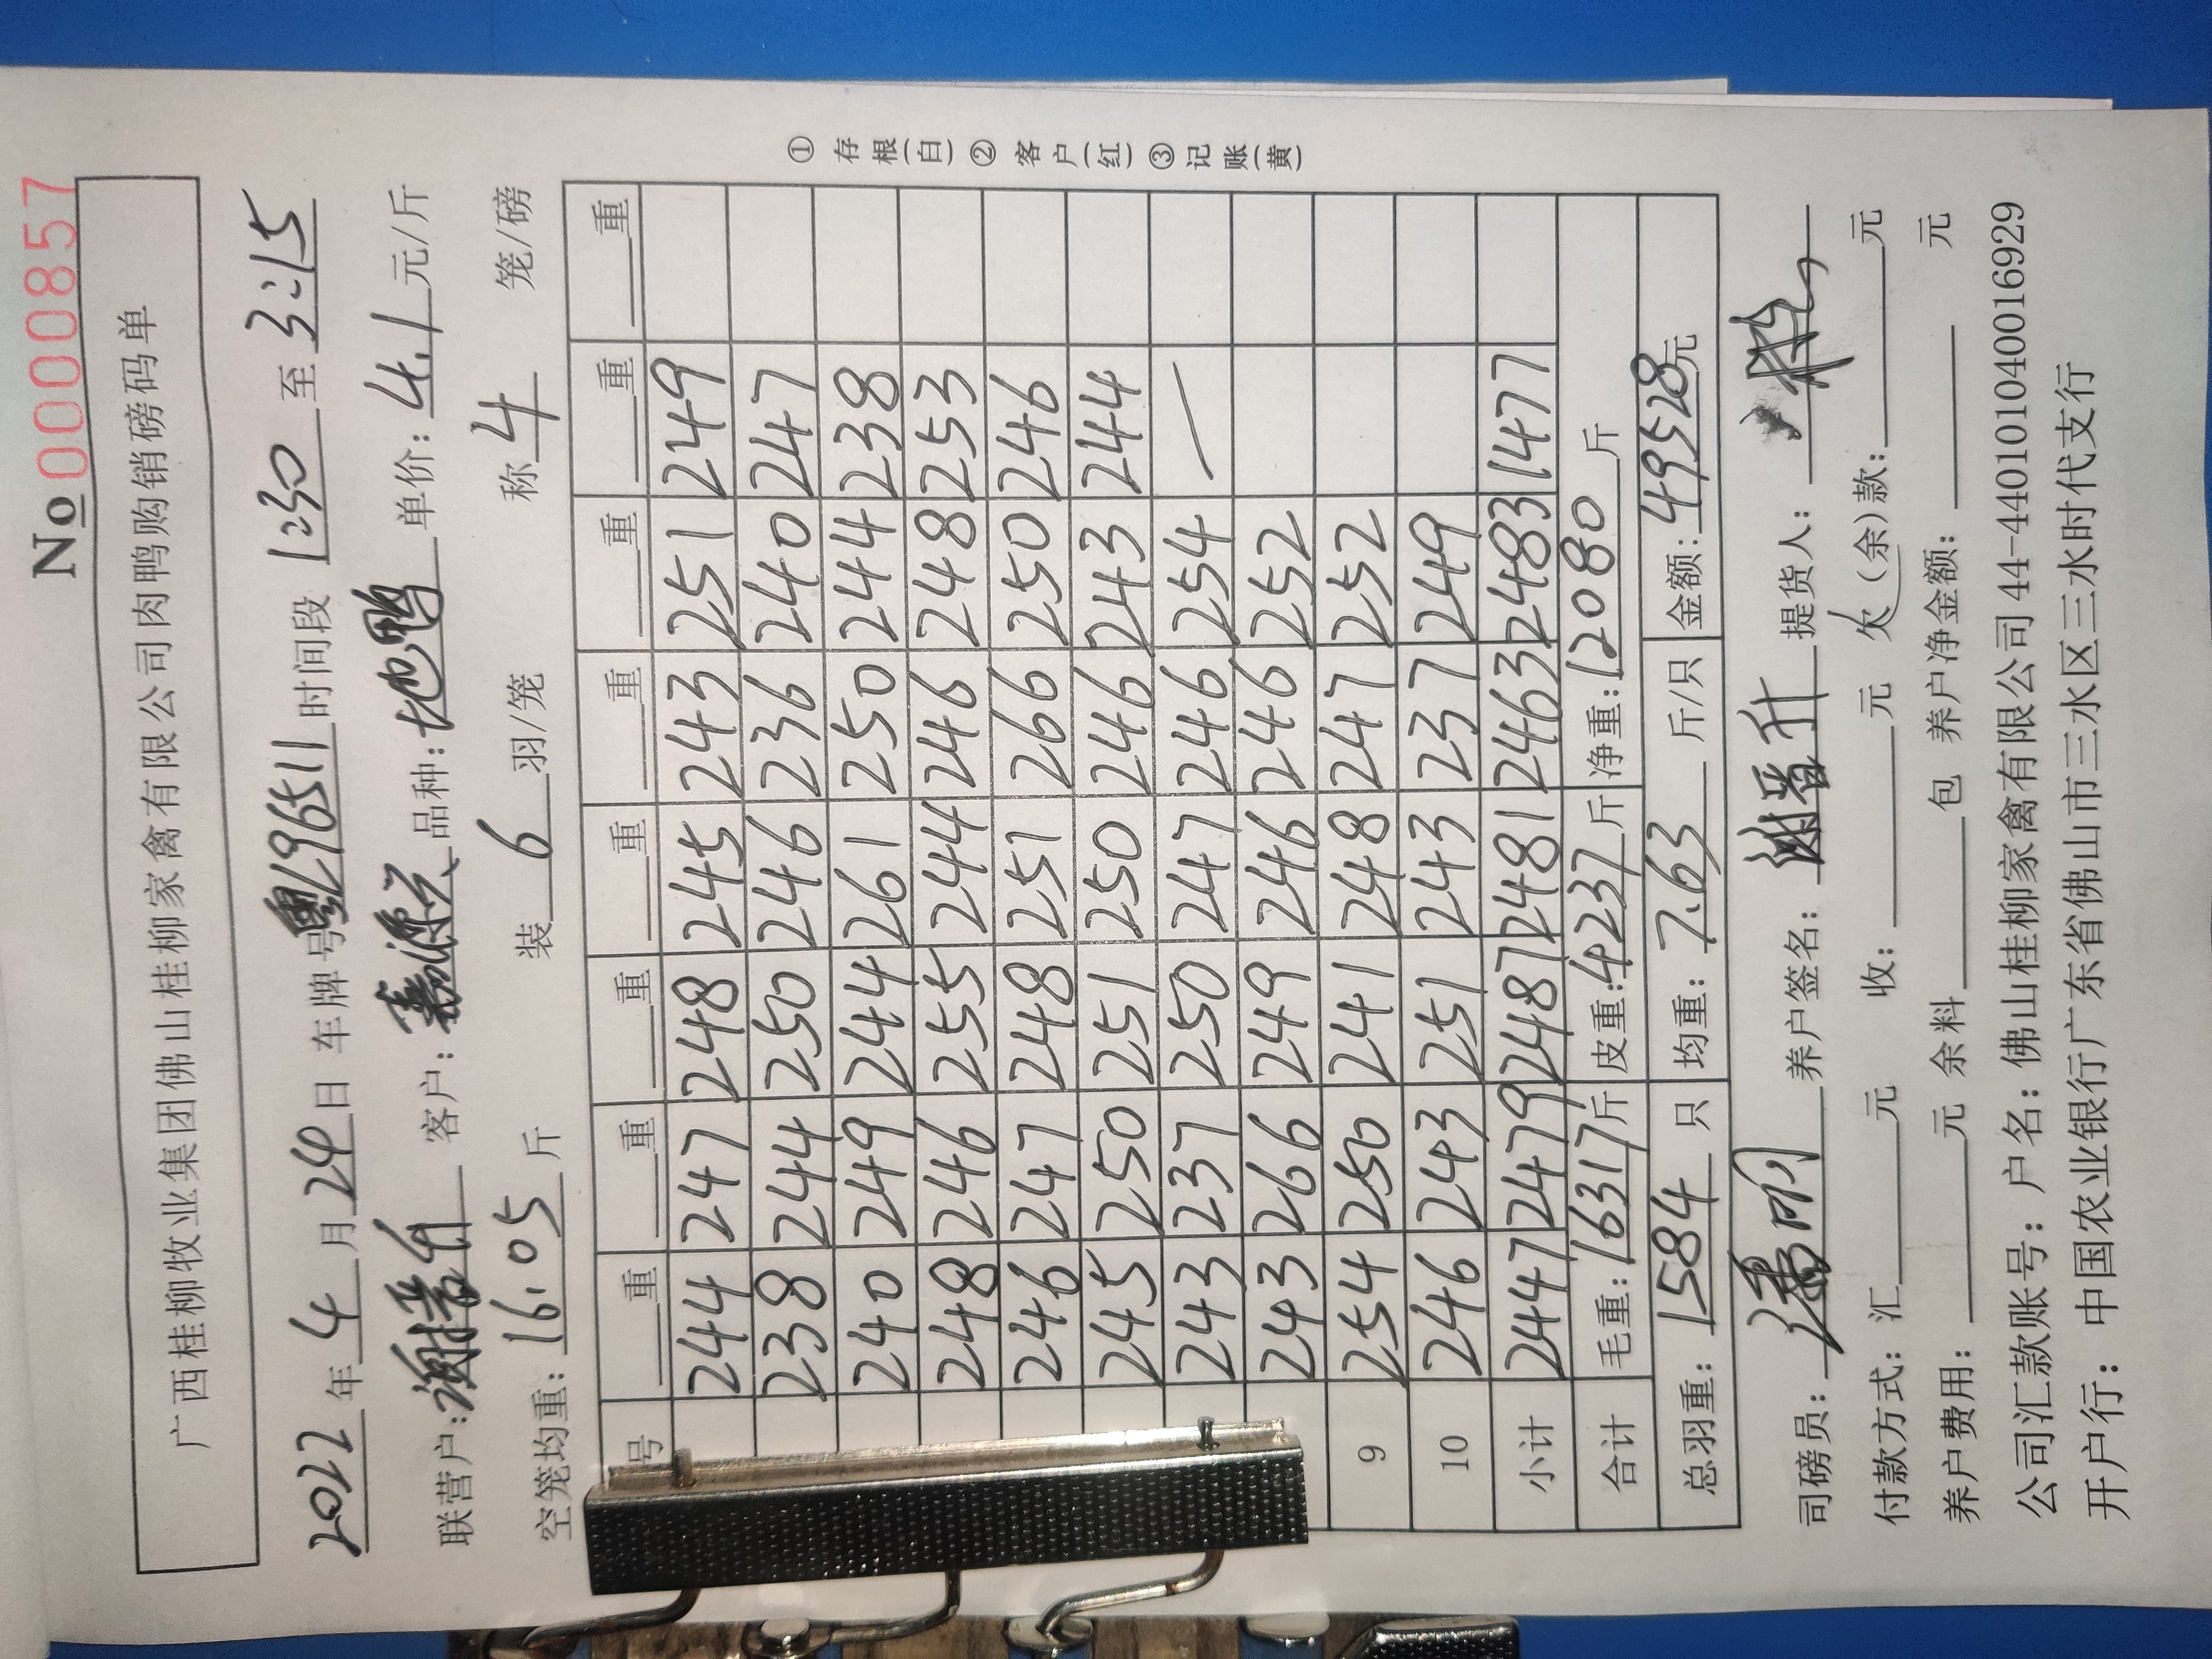 No 0000857
广西桂柳牧业集团佛山桂柳家禽有限公司肉鸭购销磅码单
2022年4月24日 车牌号粤L96511时间段1:30至3:15
联营户:谢晋升 客户: 品种:地鸭 单价:4.1元/斤
空笼均重:16.05斤 装6羽/笼 称4笼/磅
号 重 重 重 重 重 重 重 重
244 247 248 245 243 251 249
238 244 250 246 236 240 247
240 249 244 261 250 244 238
248 246 255 244 246 248 253
246 247 248 251 266 250 246
245 250 251 250 246 243 244
243 237 250 247 246 254 /
243 266 249 246 246 252
9 254 250 241 248 247 252
10 246 243 251 243 237 249
小计 2447 2479 2487 2481 2463 2483 1477
合计 毛重:16317斤 皮重:4237斤 净重:12080斤
总羽重:1584只 均重:7.63斤/只 金额:49528元
①存根(白)②客户(红)③记账(黄)
司磅员:潘明 养户签名:谢晋升 提货人:
付款方式:汇 元 收: 元 欠(余)款: 元
养户费用: 元 余料 包 养户净金额: 元
公司汇款账号:户名:佛山桂柳家禽有限公司44-440101040016929
开户行:中国农业银行广东省佛山市三水区三水时代支行